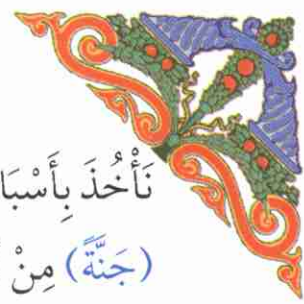 نَأْخُذَ بِأَسْبَا
(جَنَّةً) مِنْ